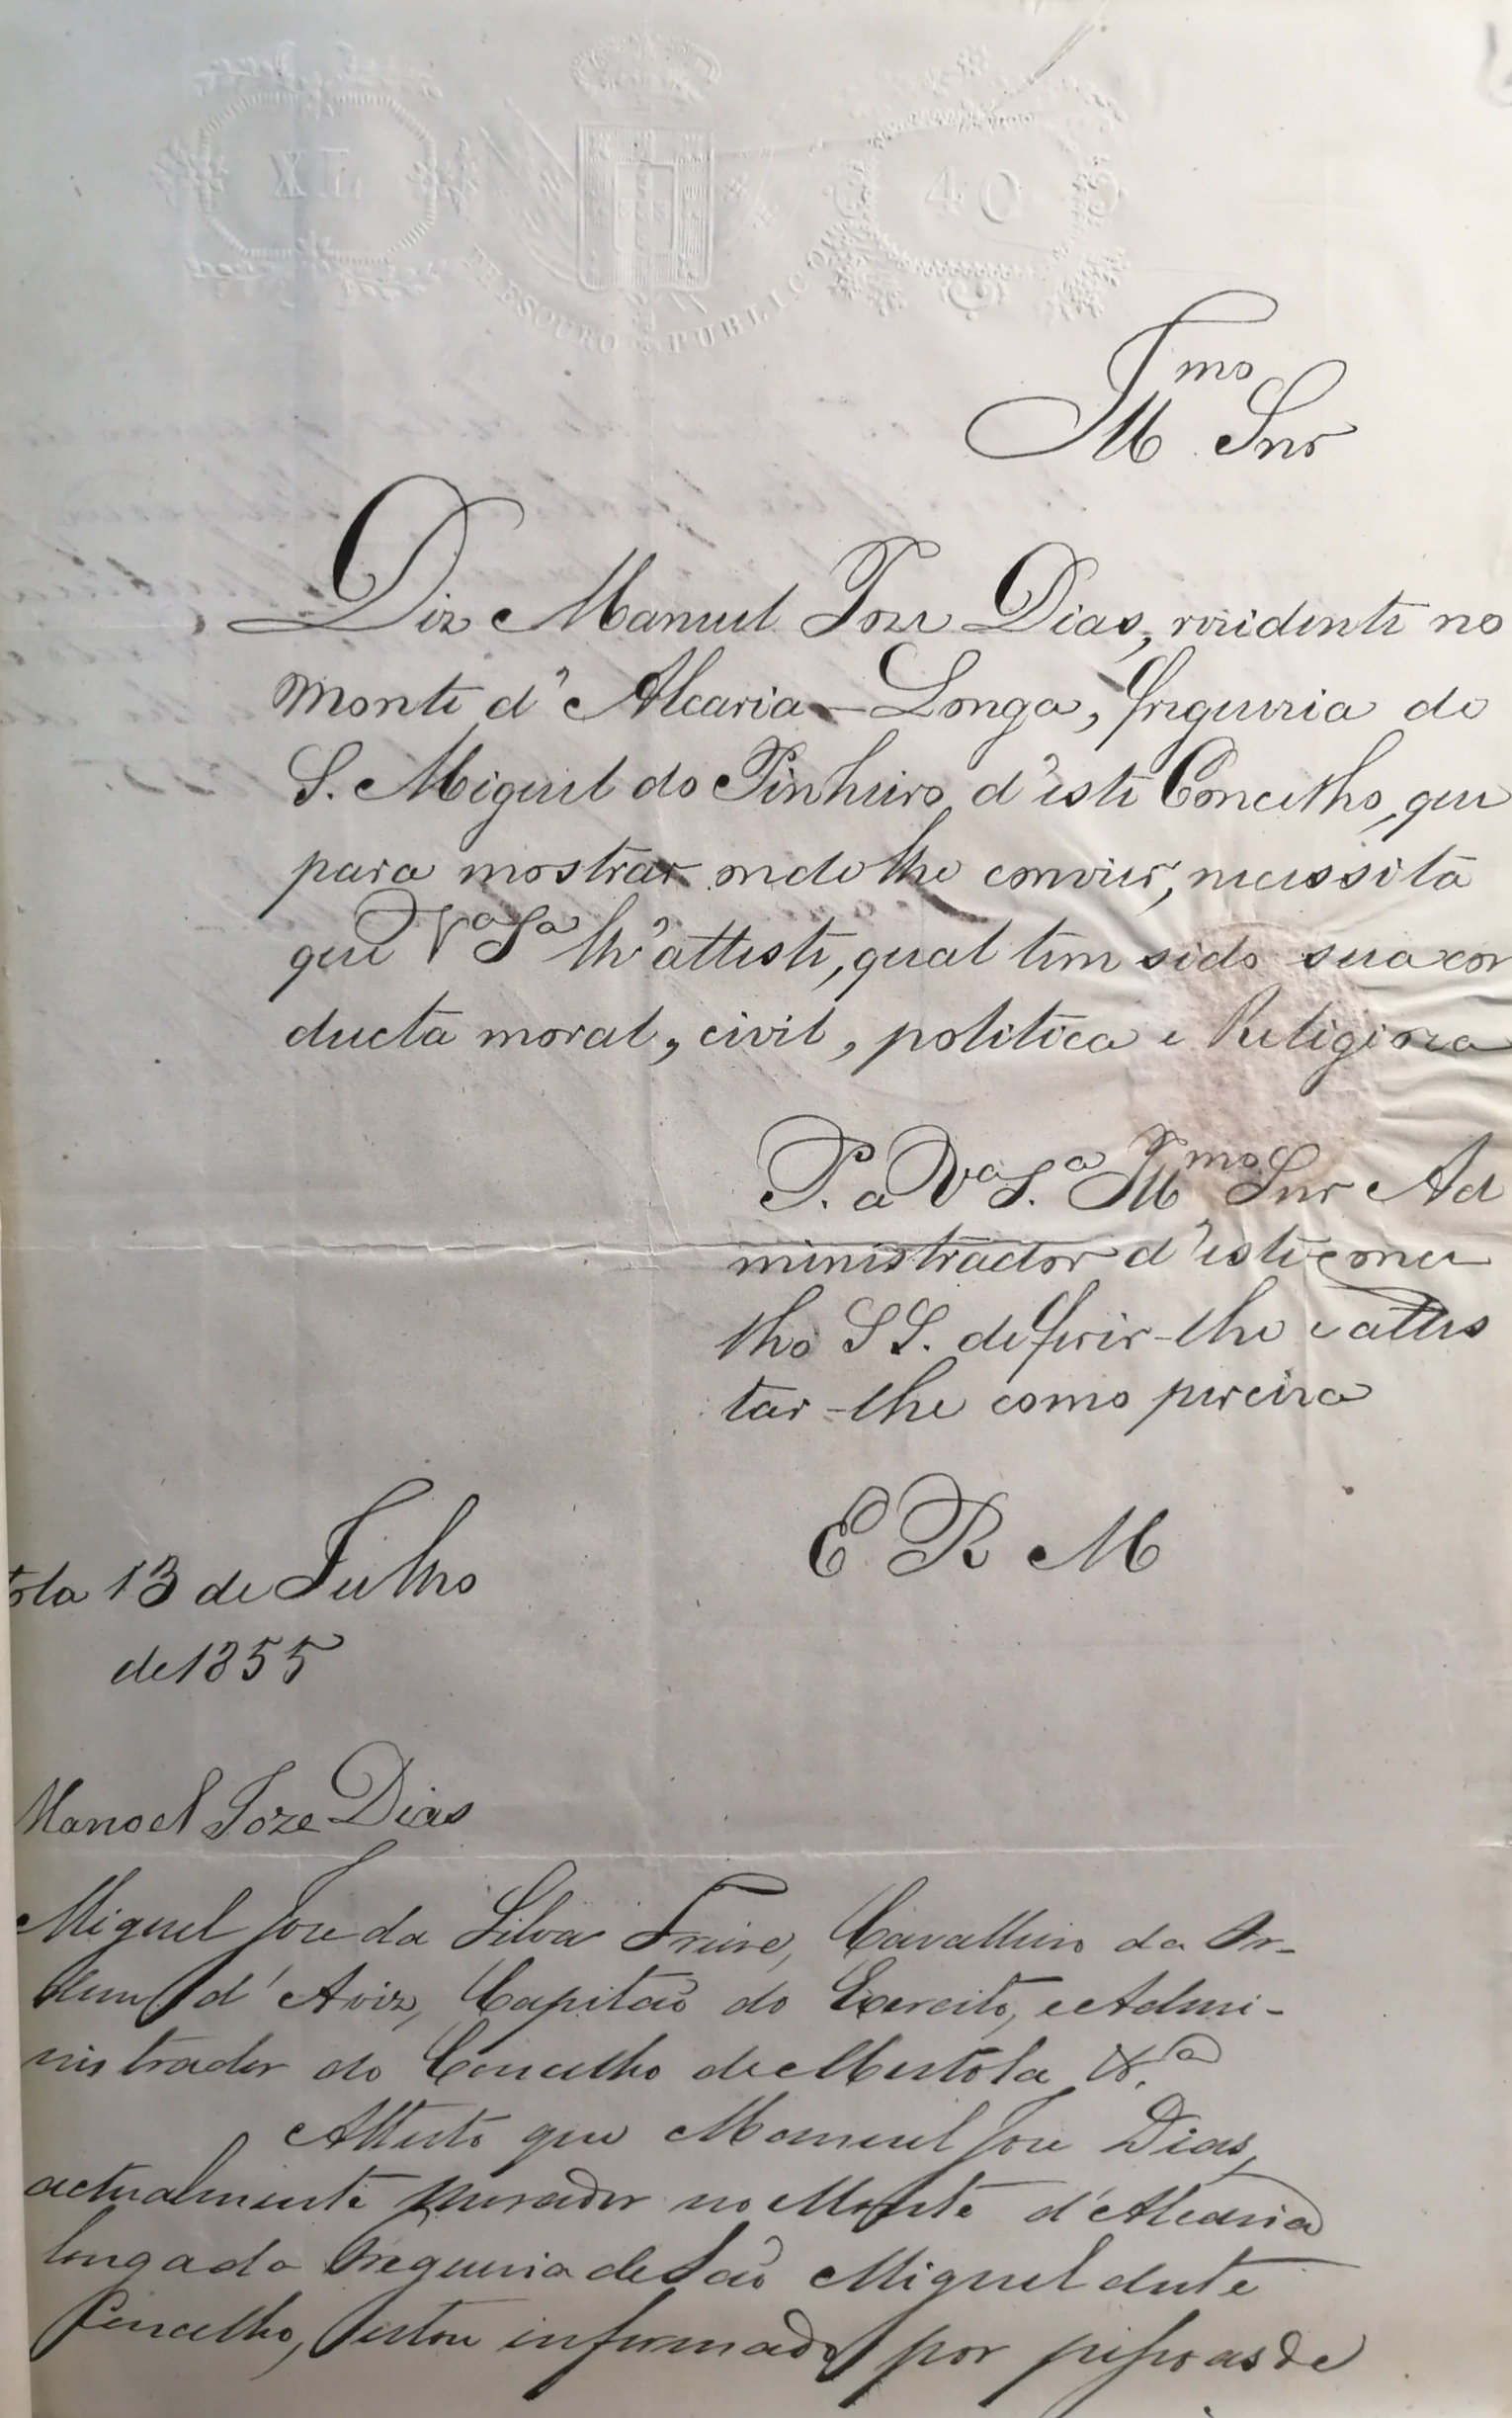 XL
THESOURO PUBLICO
40
Illmo Snr
Diz Manuel Joze Dias, rezidente no
Monte d'Alcaria-Longa, freguezia de
S. Miguel do Pinheiro, d'este Concelho, que
para mostrar onde lhe convier, necessita
que Va Sa lh'atteste, qual tem sido sua con
ducta moral, civil, politica e Religioza
P. a Va S.a Illmo Snr Ad
ministrador d'este conce
lho SS. deferir-lhe e attes
tar-lhe como pereira
E R M
tola 13 de Julho
de 1855
Manoel Joze Dias
Miguel Joze da Silva Freire, Cavalleiro da Or-
dem d'Aviz, Capitaõ do Exercito, e Admi-
nistrador do Concelho de Mertola &.a
Attesto que Manuel Joze Dias,
actualmente morador no Monte d'Alcaria
longa da Freguezia de Saõ Miguel deste
Concelho, estou informado por pessoas de